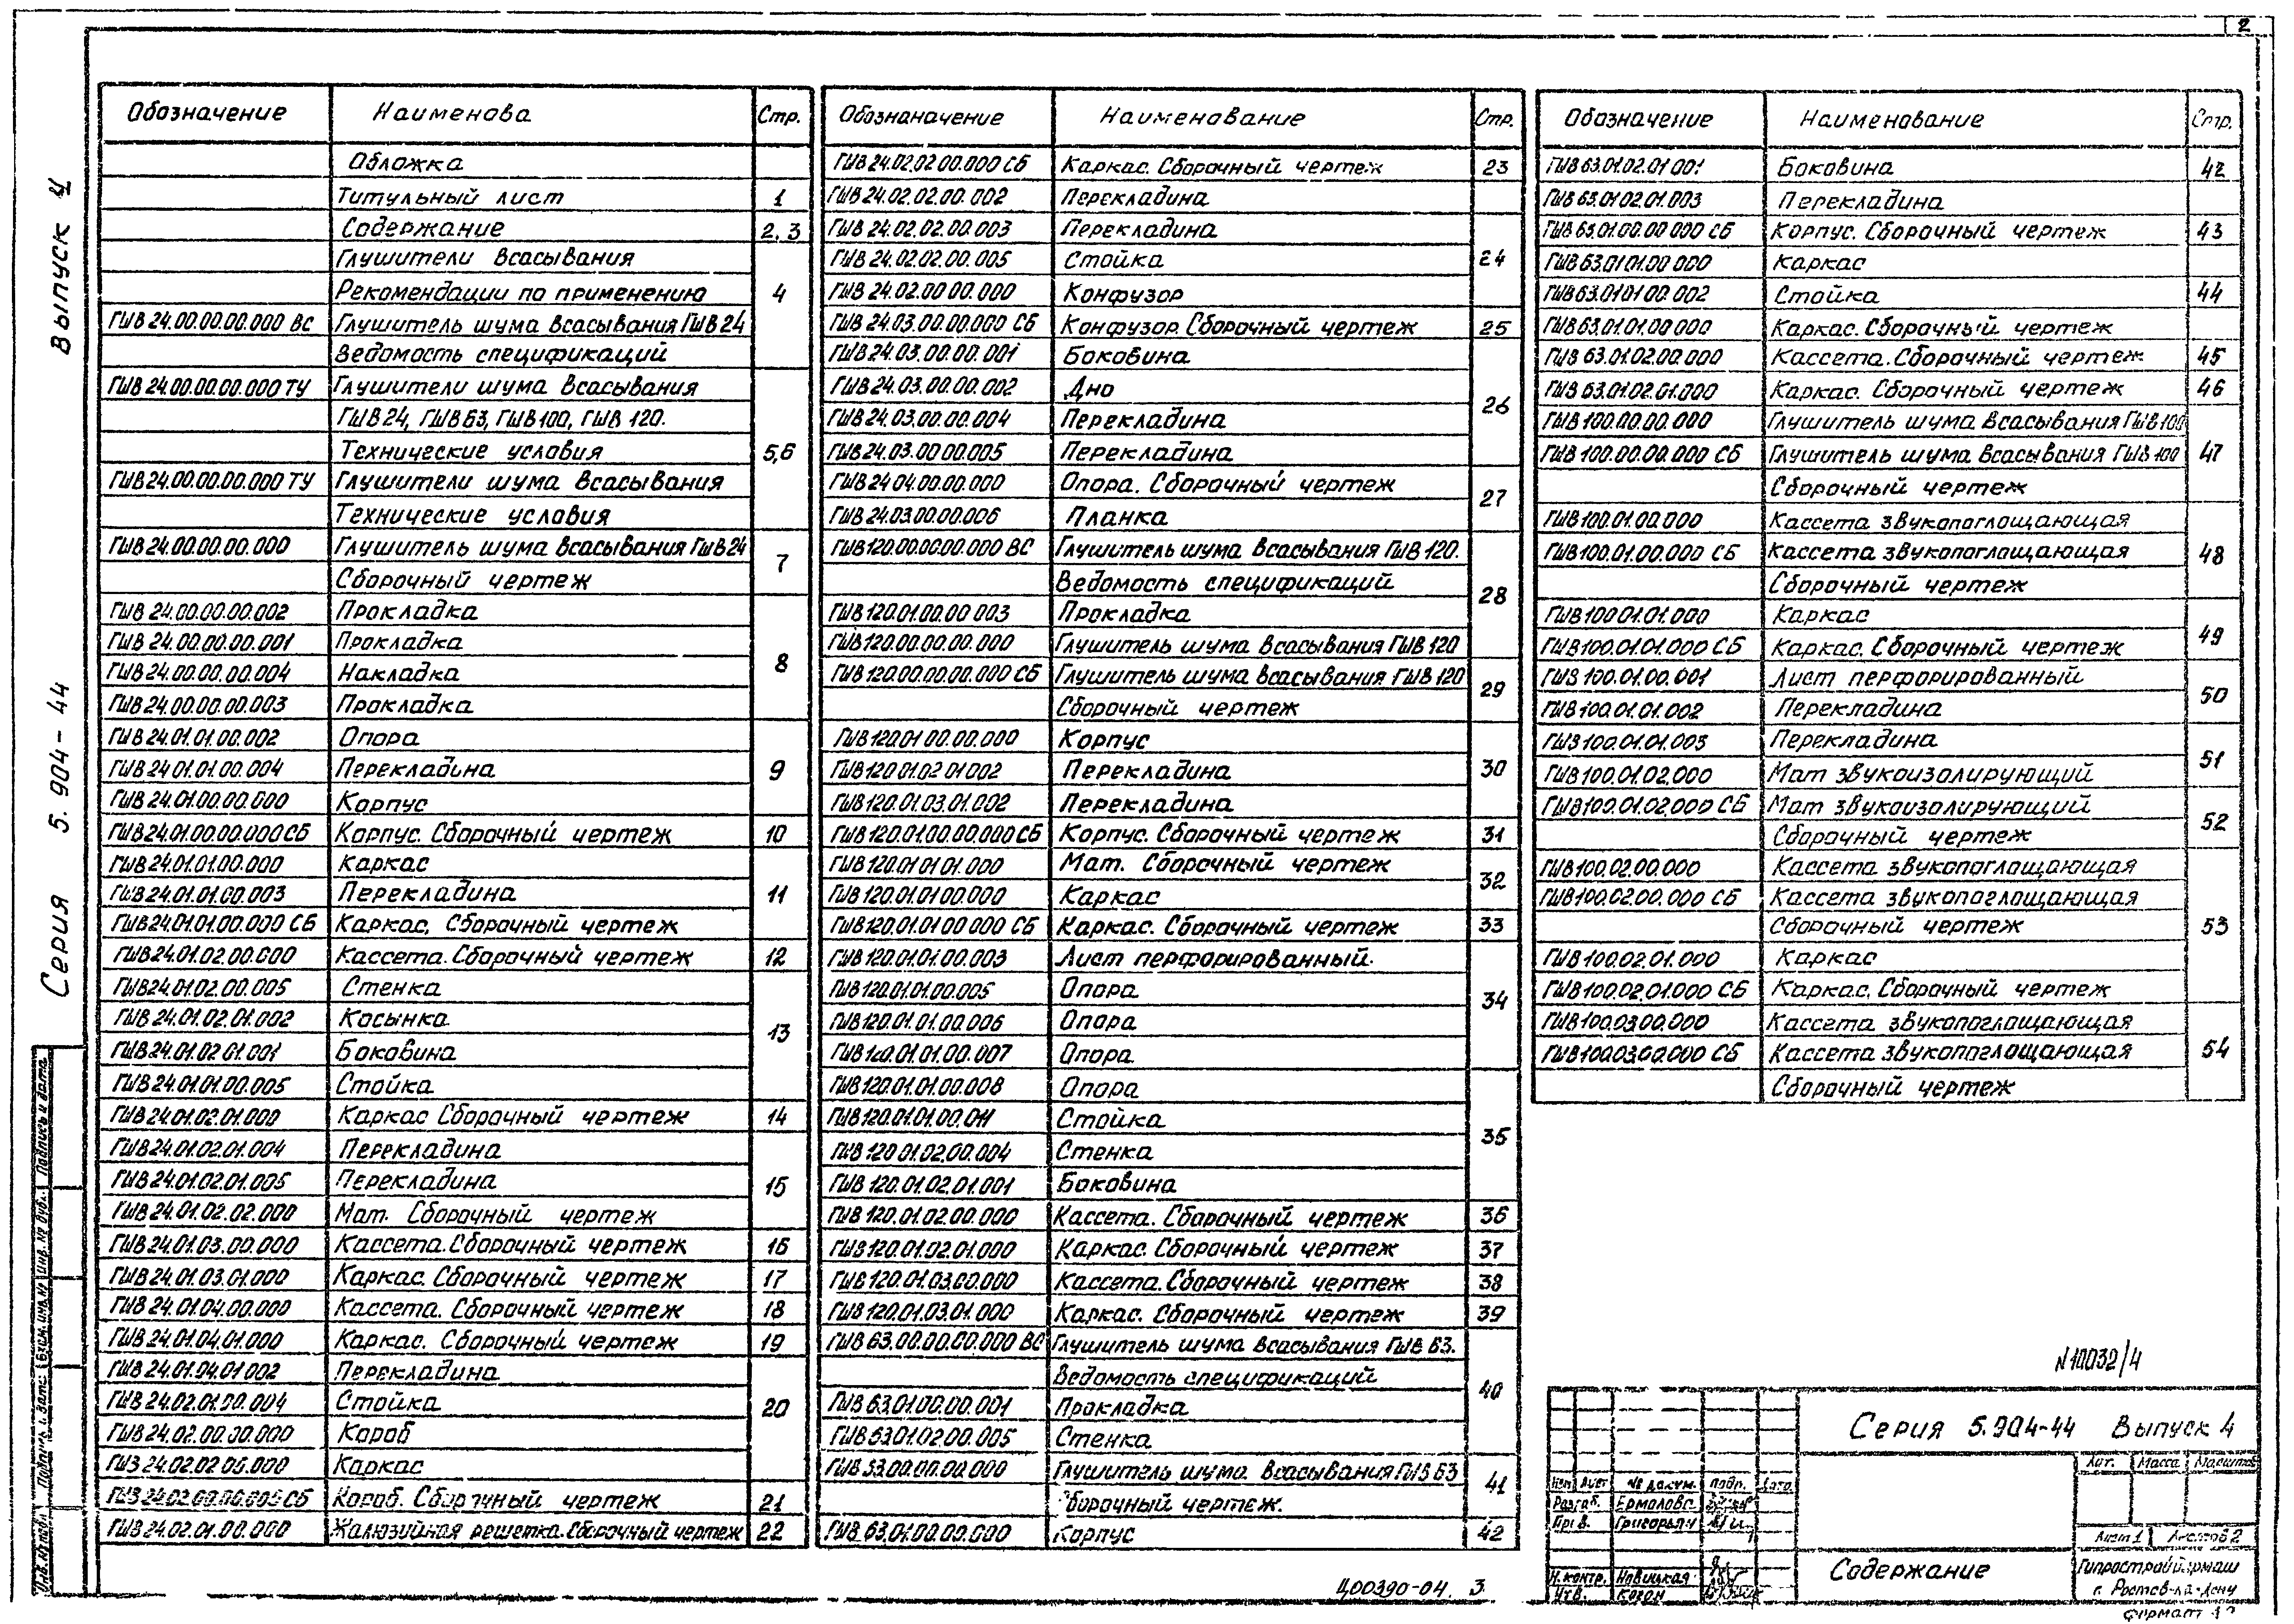 2
Выпуск 4
Серия 5.904-44
Обозначение Наименова Стр.
Обложка
Титульный лист 1
Содержание 2,3
Глушители всасывания
Рекомендации по применению 4
ГШВ 24.00.00.00.000 ВС Глушитель шума всасывания ГШВ 24
Ведомость спецификаций
ГШВ 24.00.00.00.000 ТУ Глушители шума всасывания
ГШВ 24, ГШВ 63, ГШВ 100, ГШВ 120.
Технические условия 5,6
ГШВ 24.00.00.00.000 ТУ Глушители шума всасывания
Технические условия
ГШВ 24.00.00.00.000 Глушитель шума всасывания ГШВ 24
Сборочный чертеж 7
ГШВ 24.00.00.00.002 Прокладка
ГШВ 24.00.00.00.001 Прокладка
ГШВ 24.00.00.00.004 Накладка 8
ГШВ 24.00.00.00.003 Прокладка
ГШВ 24.01.01.00.002 Опора
ГШВ 24.01.01.00.004 Перекладина 9
ГШВ 24.01.00.00.000 Корпус
ГШВ 24.01.00.00.000 СБ Корпус. Сборочный чертеж 10
ГШВ 24.01.01.00.000 Каркас
ГШВ 24.01.01.00.003 Перекладина 11
ГШВ 24.01.01.00.000 СБ Каркас, Сборочный чертеж
ГШВ 24.01.02.00.000 Кассета. Сборочный чертеж 12
ГШВ 24.01.02.00.005 Стенка
ГШВ 24.01.02.01.002 Косынка
ГШВ 24.01.02 01.001 Боковина 13
ГШВ 24.01.01.00.005 Стойка
ГШВ 24.01.02.01.000 Каркас Сборочный чертеж 14
ГШВ 24.01.02.01.004 Перекладина
ГШВ 24.01.02.01.005 Перекладина 15
ГШВ 24.01.02.02.000 Мат. Сборочный чертеж
ГШВ 24.01.03.00.000 Кассета. Сборочный чертеж 16
ГШВ 24.01.03.01.000 Каркас. Сборочный чертеж 17
ГШВ 24.01.04.00.000 Кассета. Сборочный чертеж 18
ГШВ 24.01.04.01.000 Каркас. Сборочный чертеж 19
ГШВ 24.01.04.01 002 Перекладина
ГШВ 24.02.01.00.004 Стойка 20
ГШВ 24.02.00.00.000 Короб
ГШВ 24.02.02 00.000 Каркас
Короб. Сборочный чертеж 21
ГШВ 24.02.01.00.000 Жалюзийная решетка. Сборочный чертеж 22
Обознаначение Наименование Стр.
ГШВ 24.02.02.00.000 СБ Каркас. Сборочный чертеж 23
ГШВ 24.02.02.00.002 Перекладина
ГШВ 24.02.02.00.003 Перекладина
ГШВ 24.02.02.00.005 Стойка 24
ГШВ 24.02.00 00.000 Конфузор
ГШВ 24.03.00.00.000 СБ Конфузор Сборочный чертеж 25
ГШВ 24.03.00.00.001 Боковина
ГШВ 24.03.00.00.002 Дно
ГШВ 24.03.00.00.004 Перекладина 26
ГШВ 24.03.00 00.005 Перекладина
ГШВ 24 04.00.00.000 Опора. Сборочный чертеж
ГШВ 24.03.00.00.006 Планка 27
ГШВ 120.00.00.00.000 ВС Глушитель шума всасывания ГШВ 120.
Ведомость спецификаций
ГШВ 120.01.00.00 003 Прокладка 28
ГШВ 120.00.00.00.000 Глушитель шума всасывания ГШВ 120
ГШВ 120.00.00.00.000 СБ Глушитель шума всасывания ГШВ 120
Сборочный чертеж 29
ГШВ 120.01 00.00.000 Корпус
ГШВ 120.01.02 01 002 Перекладина 30
ГШВ 120.01.03.01.002 Перекладина
ГШВ 120.01.00.00.000 СБ Корпус. Сборочный чертеж 31
ГШВ 120.01 01 01.000 Мат. Сборочный чертеж
ГШВ 120.01.01 00.000 Каркас 32
ГШВ 120.01.01 00 000 СБ Каркас. Сборочный чертеж 33
ГШВ 120.01.01.00.003 Лист перфорированный.
ГШВ 120.01.01.00.005 Опора
ГШВ 120.01.01.00.006 Опора 34
ГШВ 120.01.01.00.007 Опора
ГШВ 120.01.01 00.008 Опора
ГШВ 120.01.01.00.011 Стойка
ГШВ 120 01.02.00.004 Стенка 35
ГШВ 120.01.02.01.001 Боковина
ГШВ 120.01.02.00.000 Кассета. Сборочный чертеж 36
ГШВ 120.01.02.01.000 Каркас Сборочный чертеж 37
ГШВ 120.01.03.00.000 Кассета. Сборочный чертеж 38
ГШВ 120.01.03.01.000 Каркас. Сборочный чертеж 39
ГШВ 63.00.00.00.000 ВС Глушитель шума всасывания ГШВ 63.
Ведомость спецификаций
ГШВ 63.01.00.00.001 Прокладка 40
ГШВ 63.01.02.00.005 Стенка
Глушитель шума всасывания ГШВ 63
борочный чертеж. 41
ГШВ 63.01.00.00.000 Корпус 42
Обозначение Наименование Стр.
ГШВ 63.01.02.01 001 Боковина 42
ГШВ 63.01 02.01.003 Перекладина
ГШВ 63.01.00.00 000 СБ Корпус. Сборочный чертеж 43
ГШВ 63.01 01.00 000 Каркас
ГШВ 63.01 01 00.002 Стойка 44
ГШВ 63.01.01.00 000 Каркас. Сборочный чертеж
ГШВ 63.01 02.00.000 Кассета. Сборочный чертеж 45
ГШВ 63.01.02.01.000 Каркас. Сборочный чертеж 46
ГШВ 100.00.00.000 Глушитель шума всасывания ГШВ 100
ГШВ 100.00.00.000 СБ Глушитель шума всасывания ГШВ 100 47
Сборочный чертеж
ГШВ 100.01.00.000 Кассета звукопоглощающая
ГШВ 100.01.00.000 СБ Кассета звукопоглощающая 48
Сборочный чертеж
ГШВ 100 01.01.000 Каркас
ГШВ 100.01.01.000 СБ Каркас. Сборочный чертеж 49
ГШВ 100.01.00.001 Лист перфорированный
ГШВ 100.01.01.002 Перекладина 50
ГШВ 100.01.01.003 Перекладина
ГШВ 100.01.02.000 Мат звукоизолирующий 51
ГШВ 100.01.02.000 СБ Мат звукоизолирующий
Сборочный чертеж 52
ГШВ 100.02.00.000 Кассета звукопоглощающая
ГШВ 100.02.00.000 СБ Кассета звукопоглощающая
Сборочный чертеж 53
ГШВ 100.02.01.000 Каркас
ГШВ 100.02.01.000 СБ Каркас. Сборочный чертеж
ГШВ 100.03 00.000 Кассета звукопоглощающая
ГШВ 100.03.00.000 СБ Кассета звукопоглощающая 54
Сборочный чертеж
N 10032/4
Серия 5.904-44 Выпуск 4
Лит. Масса Масштаб
Изм Лист № докум. Подп. Дата
Разраб. Ермолова
Пров. Григорьян
Лист 1 Листов 2
Н. контр. Новицкая
Утв. Коган
Содержание
Гипростройдормаш
г. Ростов-на-Дону
Формат
Ц00390-04 3
Подпись и дата
Инв. № дубл.
Взам. инв. №
Подпись и дата
Инв. № подл